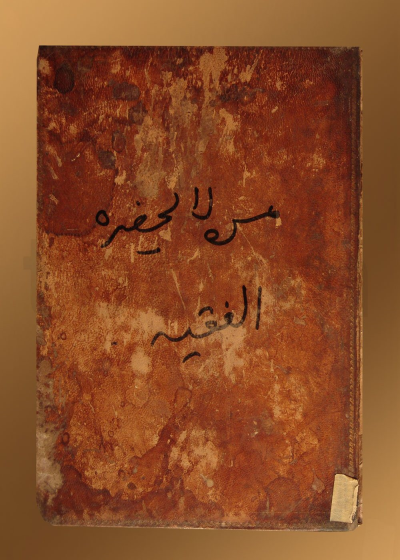 من لا لحضره
الفقيه